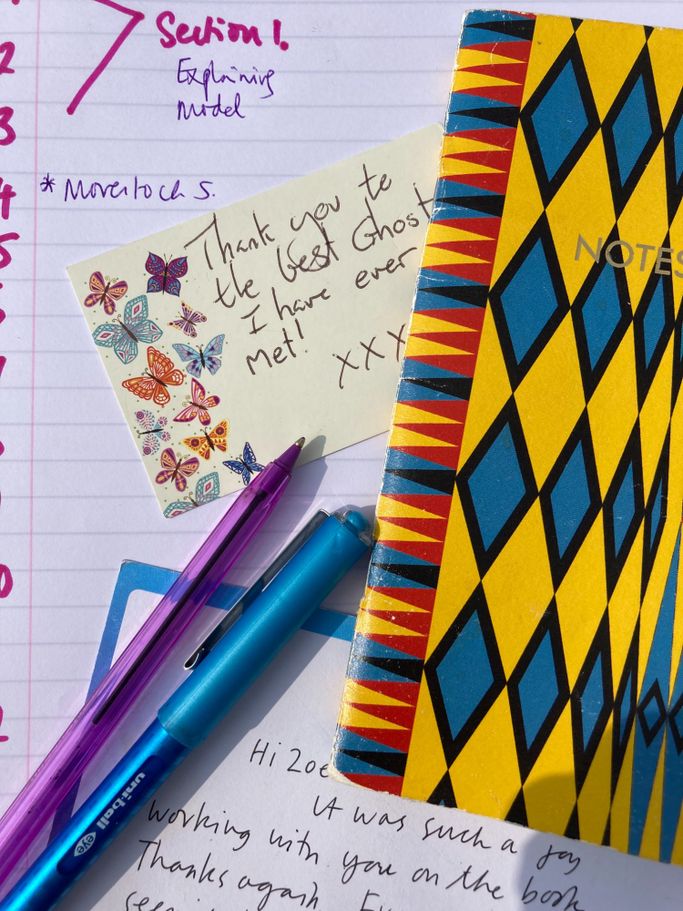 Section 1.
Explaining
Model
2
3
4
* Move to ch 5.
5
Thank you to
the best Ghost
I have ever
met!
XXX
NOTES
0
2
uni-ball
eye
Hi Zoe
It was such a joy
working with you on the book
Thanks again